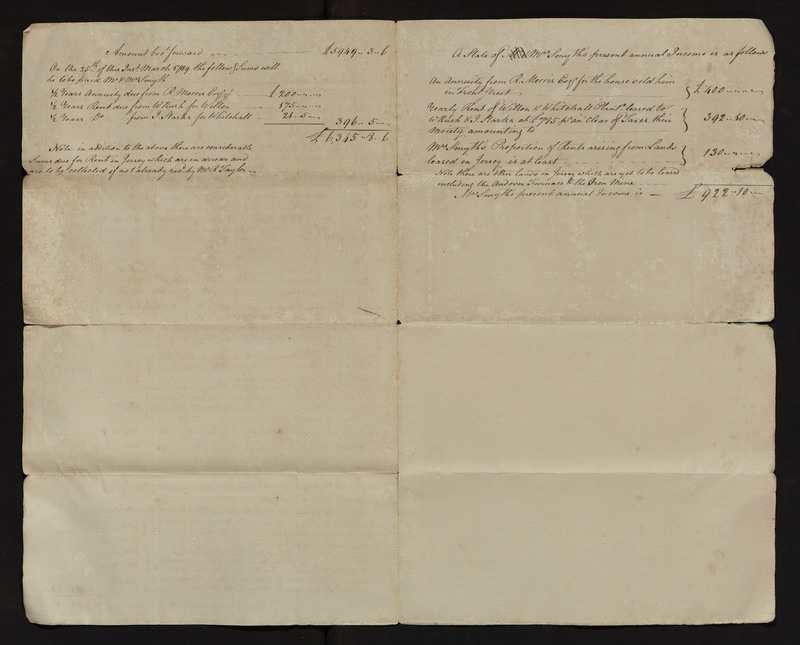 Amount bro' forward — £5949 - 3 - 6
On the 25th of this Inst March 1789 the follow'g Sums will
be to be paid Mr & Mrs Smyth
½ Years Annuity due from R. Morris Esqr — £ 200 - -
½ Years Rent due from W Kirk for Wilton — 175 - -
½ Years Do from J. Starke for Whitehall — 21 - 5 -
396 - 5 -
£6,345 - 8 - 6
Note in addition to the above there are considerable
Sums due for Rent in Jersey which are in arrear and
are to be collected if not already recd by Mr R Taylor
A State of Mrs Smyths present annual Income is as follows
An Annuity from R. Morris Esqr for the house sold him
in Front Street,
£ 400 - -
Yearly Rent of Wilton & Whitehall Plantns leased to
W Kirk & J. Starke at £785 pr an Clear of Taxes their
Moiety amounting to
392 - 10 -
Mrs Smyths Proportion of Rents arising from Lands
leased in Jersey is at least
130 - -
Note there are other Lands in Jersey which are yet to be leased
including the Andover Furnace & the Iron Mine
Mrs Smyths present annual Income is — £922 - 10 -